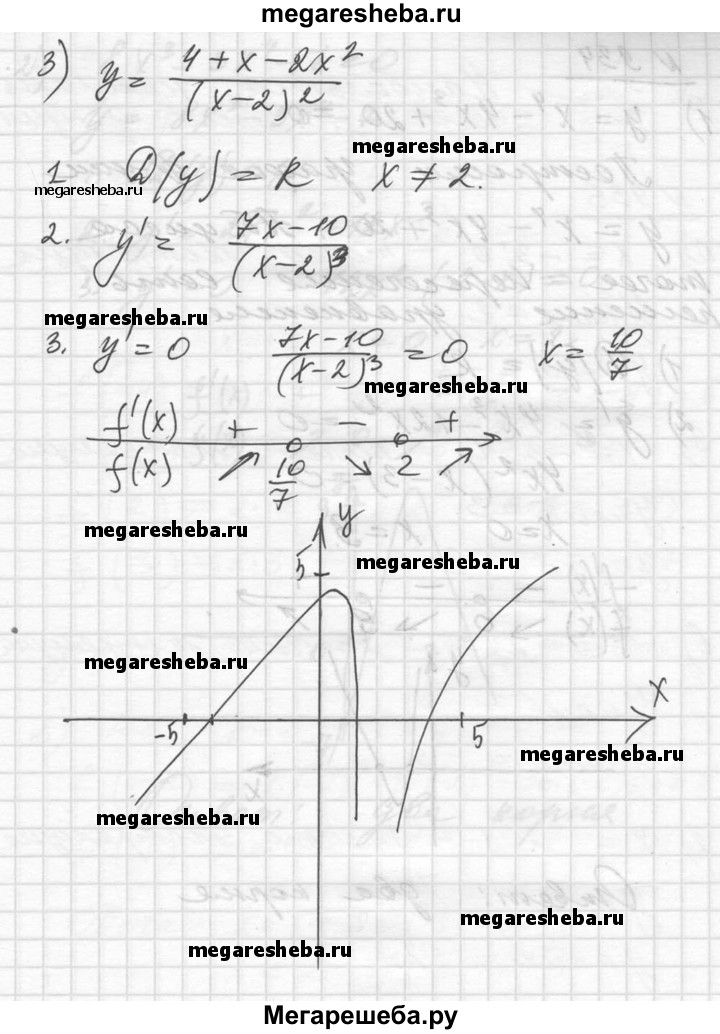 megaresheba.ru
3) y = (4+x-2x²)/(x-2)²
megaresheba.ru
1. D(y) = R x ≠ 2.
megaresheba.ru
2. y' = (7x-10)/(x-2)³
megaresheba.ru
3. y' = 0 (7x-10)/(x-2)³ = 0 x = 10/7
megaresheba.ru
f'(x) + - +
f(x) ↗ 10/7 ↘ 2 ↗
megaresheba.ru
y
megaresheba.ru
5
megaresheba.ru
x
-5 5
megaresheba.ru
megaresheba.ru
megaresheba.ru
megaresheba.ru
Мегарешеба.ру